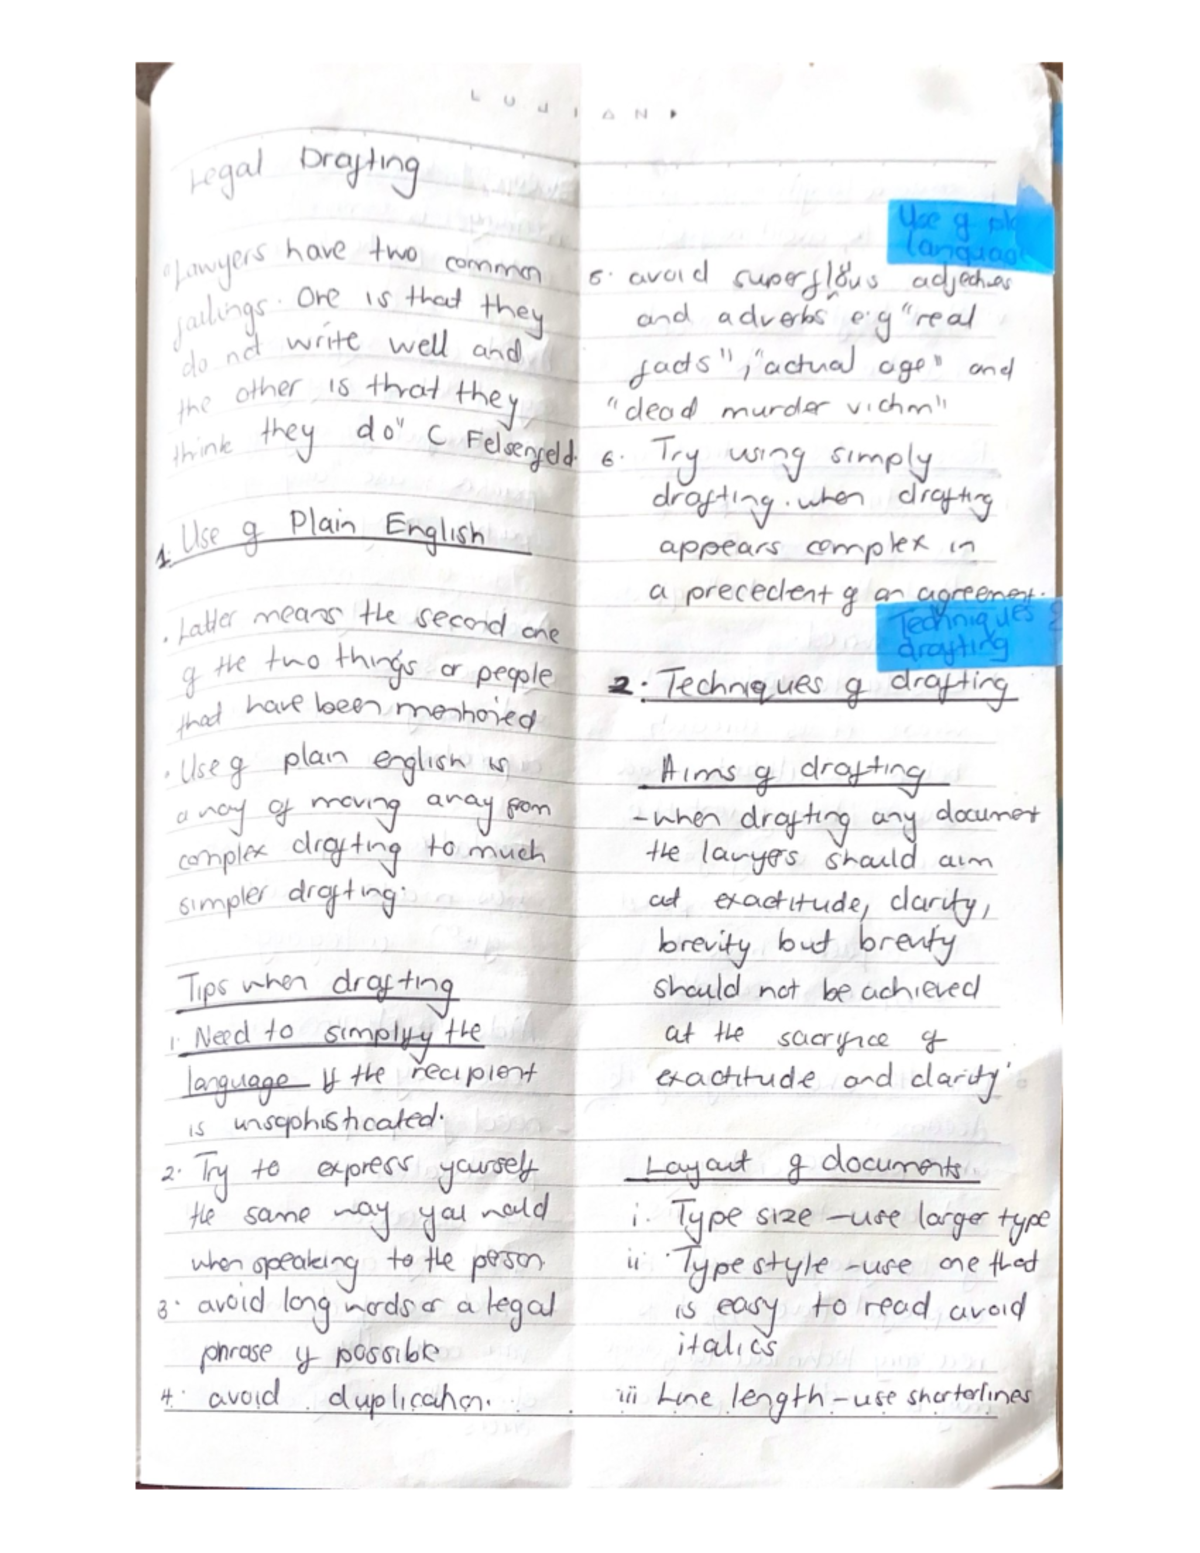 LUJIAN
Legal Drafting
"Lawyers have two common
failings. One is that they
do not write well and
the other is that they
think they do" C Felsenfeld.
1. Use of Plain English
. Latter means the second one
of the two things or people
that have been mentioned
. Use of plain english is
a way of moving away from
complex drafting to much
simpler drafting.
Tips when drafting
1. Need to simplify the
language if the recipient
is unsophisticated.
2. Try to express yourself
the same way you would
when speaking to the person
3. avoid long words or a legal
phrase if possible
4. avoid duplication.
Use of pla
languag
5. avoid superflous adjectives
and adverbs e.g "real
facts", "actual age" and
"dead murder victim"
6. Try using simply
drafting. when drafting
appears complex in
a precedent of an agreement.
Techniques
drafting
2. Techniques of drafting
Aims of drafting
- when drafting any document
the lawyers should aim
at exactitude, clarity,
brevity but brevity
should not be achieved
at the sacrifice of
exactitude and clarity
Layout of documents
i. Type size - use larger type
ii. Type style - use one that
is easy to read avoid
italics
iii Line length - use shorter lines